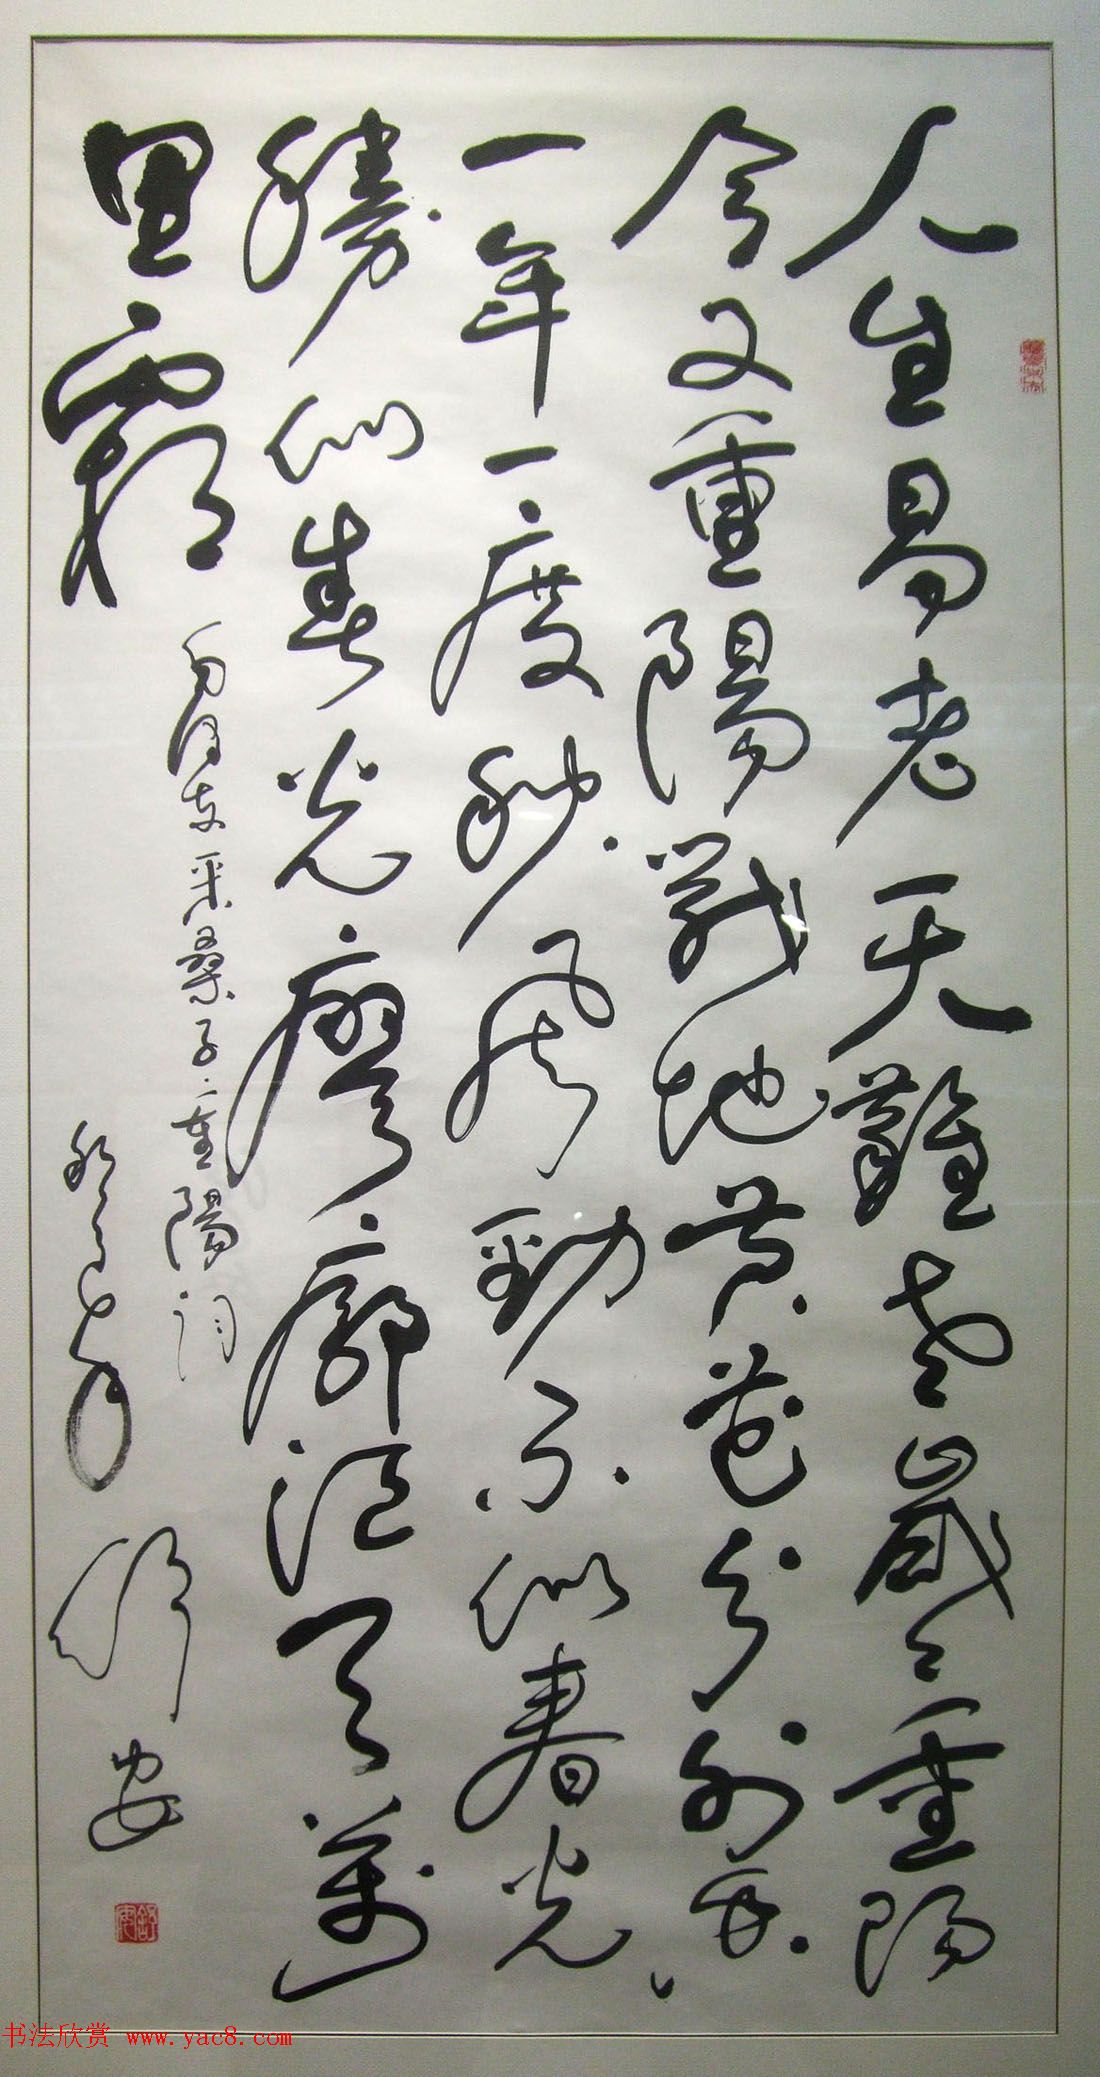 人生易老天難老歲々重陽
今又重陽戰地黃花分外香
一年一度秋風勁不似春光
勝似春光廖廓江天萬
里霜
毛澤東采桑子·重陽詞
舒安
舒安
书法欣赏 www.yac8.com